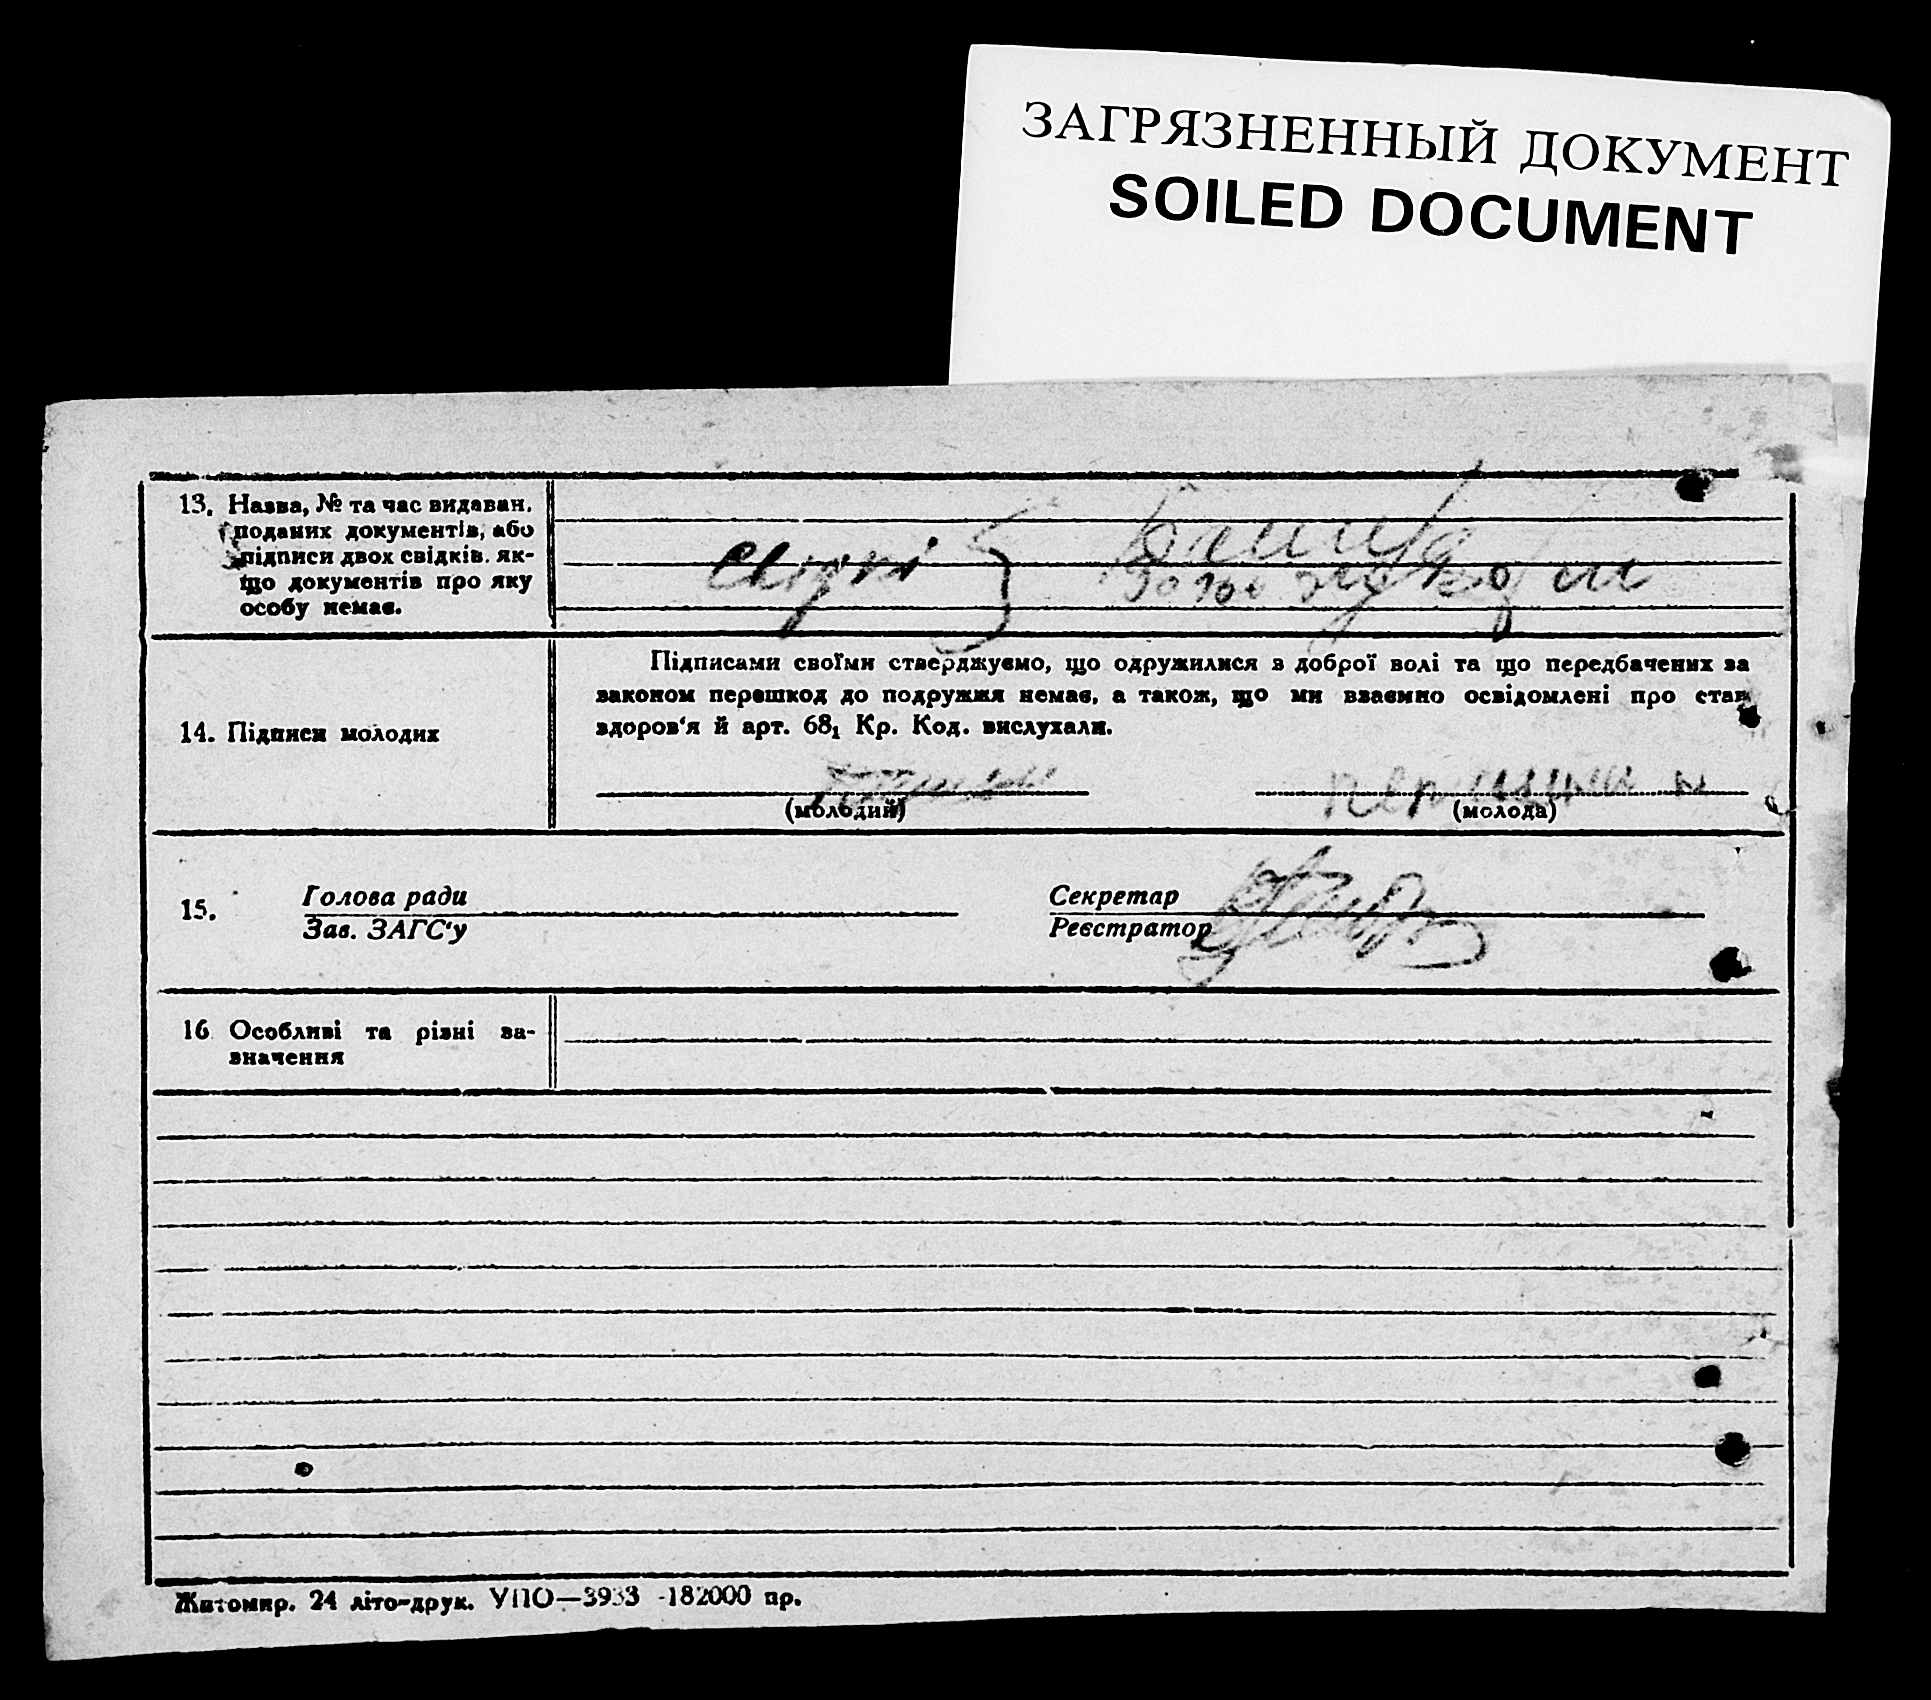 ЗАГРЯЗНЕННЫЙ ДОКУМЕНТ
SOILED DOCUMENT
13. Назва, № та час видаван.
поданих документів, або
підписи двох свідків, як-
що документів про яку
особу немає.
14. Підписи молодих
Підписами своїми стверджуємо, що одружилися з доброї волі та що передбачених за
законом перешкод до подружжя немає, а також, що ми взаємно освідомлені про стан
здоров'я й арт. 68₁ Кр. Код. вислухали.
(молодий)
(молода)
15.
Голова ради
Зав. ЗАГС'у
Секретар
Реєстратор
16 Особливі та різні за-
значення
Житомир. 24 літо-друк. УПО—3933 -182000 пр.